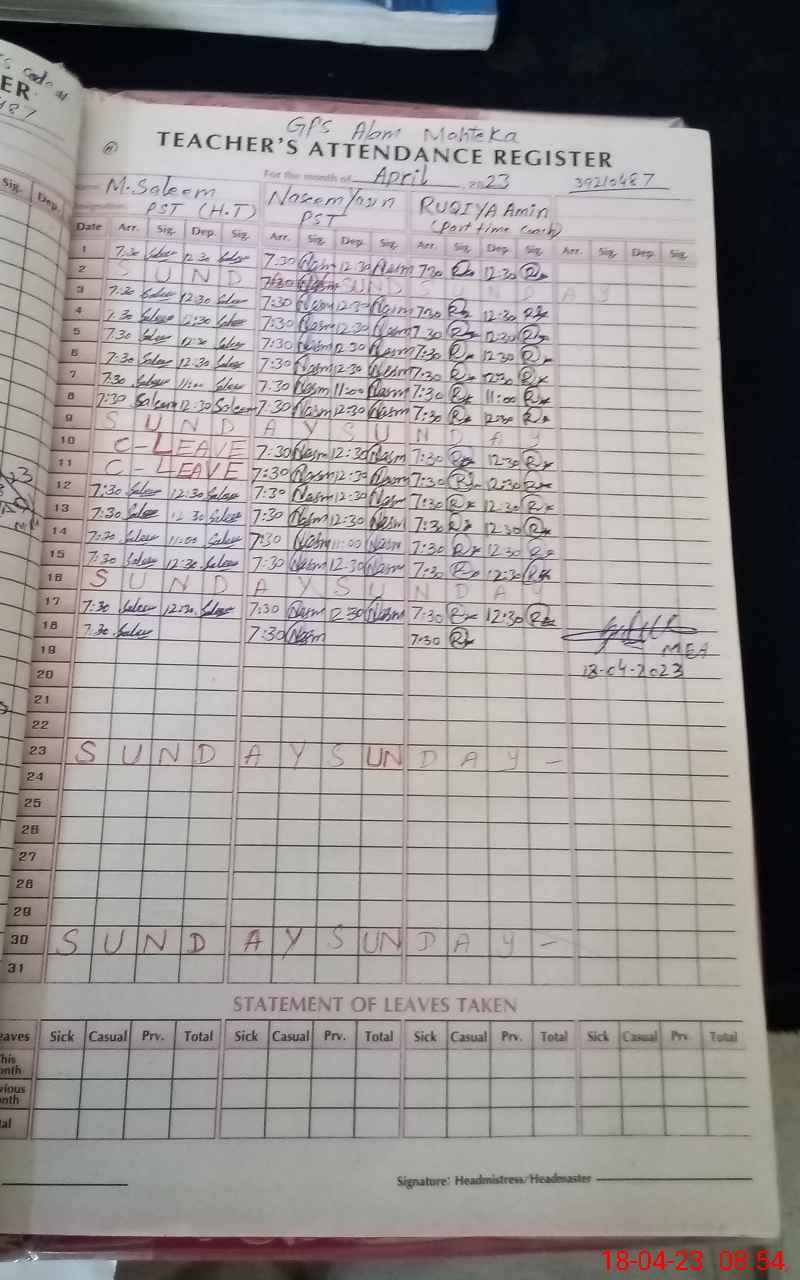 GPS Alam Mohteka
TEACHER'S ATTENDANCE REGISTER
For the month of April 2023 39210487
M.Saleem Naseem RUQIYA Amin
PST (H.T) PST (Part time Coach)
Date Arr. Sig. Dep. Sig. Arr. Sig. Dep. Sig. Arr. Sig. Dep. Sig. Arr. Sig. Dep. Sig.
1 7:30 Saleem 12:30 Saleem 7:30 Nasm 12:30 Nasm 7:30 R 12:30 R
2 S U N D SUND S U N D A Y
3 7:30 Saleem 12:30 Saleem 7:30 Nasm 12:30 Nasm 7:30 R 12:30 R
4 7:30 Saleem 12:30 Saleem 7:30 Nasm 12:30 Nasm 7:30 R 12:30 R
5 7:30 Saleem 12:30 Saleem 7:30 Nasm 12:30 Nasm 7:30 R 12:30 R
6 7:30 Saleem 12:30 Saleem 7:30 Nasm 12:30 Nasm 7:30 R 12:30 R
7 7:30 Saleem 11:00 Saleem 7:30 Nasm 11:00 Nasm 7:30 R 11:00 R
8 7:30 Saleem 12:30 Saleem 7:30 Nasm 12:30 Nasm 7:30 R 12:30 R
9 S U N D A Y S U N D A Y
10 C-LEAVE 7:30 Nasm 12:30 Nasm 7:30 R 12:30 R
11 C-LEAVE 7:30 Nasm 12:30 Nasm 7:30 R 12:30 R
12 7:30 Saleem 12:30 Saleem 7:30 Nasm 12:30 Nasm 7:30 R 12:30 R
13 7:30 Saleem 12:30 Saleem 7:30 Nasm 12:30 Nasm 7:30 R 12:30 R
14 7:30 Saleem 11:00 Saleem 7:30 Nasm 11:00 Nasm 7:30 R 12:30 R
15 7:30 Saleem 12:30 Saleem 7:30 Nasm 12:30 Nasm 7:30 R 12:30 R
16 S U N D A Y S U N D A Y
17 7:30 Saleem 12:30 Saleem 7:30 Nasm 12:30 Nasm 7:30 R 12:30 R
18 7:30 Saleem 7:30 Nasm 7:30 R
19 MEA
20 18-04-2023
21
22
23 S U N D A Y S U N D A Y -
24
25
26
27
28
29
30 S U N D A Y S U N D A Y -
31
STATEMENT OF LEAVES TAKEN
Sick Casual Prv. Total Sick Casual Prv. Total Sick Casual Prv. Total Sick Casual Prv. Total
Signature: Headmistress/Headmaster
18-04-23 08:54